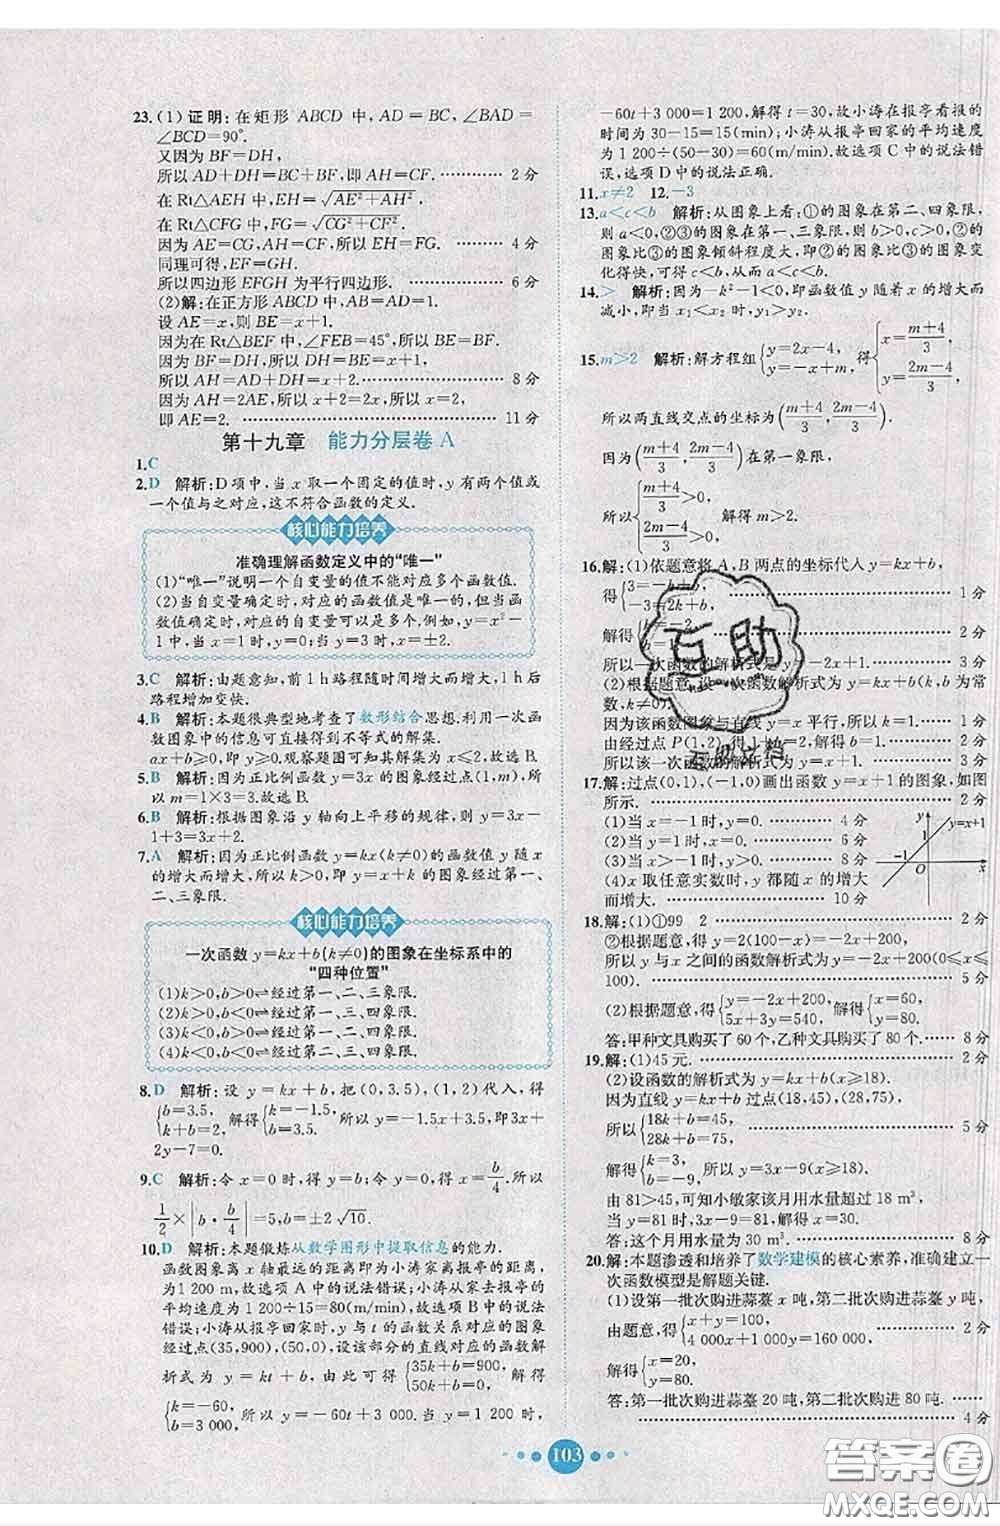 23.(1)证明:在矩形 ABCD 中,AD=BC,∠BAD=
∠BCD=90°.
又因为 BF=DH,
所以 AD+DH=BC+BF,即 AH=CF. ………… 2 分
在 Rt△AEH 中,EH=√(AE²+AH²),
在 Rt△CFG 中,FG=√(CG²+CF²).
因为 AE=CG,AH=CF,所以 EH=FG. ………… 4 分
同理可得,EF=GH.
所以四边形 EFGH 为平行四边形. ………… 6 分
(2)解:在正方形 ABCD 中,AB=AD=1.
设 AE=x,则 BE=x+1.
因为在 Rt△BEF 中,∠FEB=45°,所以 BE=BF.
因为 BF=DH,所以 DH=BE=x+1,
所以 AH=AD+DH=x+2. ………… 8 分
因为 AH=2AE,所以 x+2=2x,所以 x=2,
即 AE=2. ………… 11 分
第十九章 能力分层卷 A
1.C
2.D 解析:D 项中,当 x 取一个固定的值时,y 有两个值或
一个值与之对应,这不符合函数的定义.
核心能力培养
准确理解函数定义中的“唯一”
(1)“唯一”说明一个自变量的值不能对应多个函数值.
(2)当自变量确定时,对应的函数值是唯一的,但当函
数值确定时,对应的自变量可以是多个,例如,y=x²-
1 中,当 x=1 时,y=0;当 y=3 时,x=±2.
3.C 解析:由题意知,前 1 h 路程随时间增大而增大,1 h 后
路程增加变快.
4.B 解析:本题很典型地考查了数形结合思想.利用一次函
数图象中的信息可直接得到不等式的解集.
ax+b≥0,即图象观察可得解集为 x≤2,故选 B.
5.B 解析:因为正比例函数 y=3x 的图象经过点(1,m),
所以 m=1×3=3,故选 B.
6.B 解析:根据图象沿 y 轴向上平移的规律,则 y=3x-
1+3=3x+2.
7.A 解析:因为正比例函数 y=kx(k≠0)的函数值 y 随 x
的增大而增大,所以 k>0,即 y=kx+k 的图象经过第一、
二、三象限.
核心能力培养
一次函数 y=kx+b(k≠0)的图象在坐标系中的
“四种位置”
(1)k>0,b>0⇌经过第一、二、三象限.
(2)k>0,b<0⇌经过第一、三、四象限.
(3)k<0,b>0⇌经过第一、二、四象限.
(4)k<0,b<0⇌经过第二、三、四象限.
8.D 解析:设 y=kx+b,把(0,3.5),(1,2)代入,得
{b=3.5, k+b=2, 解得{k=-1.5, b=3.5, 所以 y=-1.5x+3.5,即3x+
2y-7=0.
9.C 解析:令 x=0 时,得 y=b;令 y=0 时,得 x=b/4. 所以
1/2×|b·b/4|=5,b=±2√10.
10.D 解析:本题锻炼从数学图形中提取信息的能力.
函数图象离 x 轴最远的距离即为小涛离家最远的距离,
为1 200 m,故选项 A 中的说法错误;小涛从家去报亭的
平均速度为 1 200÷15=80(m/min),故选项 B 中的说法
错误;小涛从报亭回家时,y 与 t 的函数关系对应的图象
经过点(35,900),(50,0),设该部分的直线对应的函数解
析式为 y=kt+b,所以{35k+b=900, 50k+b=0, 解得
{k=-60, b=3 000, 所以 y=-60t+3 000.当 y=1 200 时,
-60t+3 000=1 200,解得 t=30,故小涛在报亭看报的
时间为 30-15=15(min);小涛从报亭回家的平均速度
为 1 200÷(50-30)=60(m/min),故选项 C 中的说法错
误,选项 D 中的说法正确.
11.x≠2 12.-3
13.a<c<b 解析:从图象上看;①的图象在第二、四象限,
则 a<0,②③的图象在第一、三象限,所以 b>0,c>0,②的
图象比③的图象倾斜程度大,即②的图象比③的图象
变化得快,可得 c<b,从而 a<c<b.
14.> 解析:因为-k²-1<0,即函数值 y 随着 x 的增大而
减小,即当 x₁<x₂ 时,y₁>y₂.
15.m>2 解析:解方程组{y=2x-4, y=-x+m, 得{x=(m+4)/3, y=(2m-4)/3,
所以两直线交点的坐标为((m+4)/3,(2m-4)/3).
因为((m+4)/3,(2m-4)/3)在第一象限,
所以{(m+4)/3>0, (2m-4)/3>0, 解得 m>2.
16.解:(1)依题意将 A,B 两点的坐标代入 y=kx+b,
得{3=-k+b, -3=2k+b, ………… 1 分
解得 ………… 2 分
所以一次函数的解析式是 y=-2x+1. ………… 3 分
(2)根据题意,设一次函数解析式为 y=kx+b(b 为常
数,k≠0).
因为该函数图象与直线 y=x 平行,所以 k=1.
由经过点 P(1,2),得 1+b=2,解得 b=1. ………… 2 分
所以该一次函数的解析式为 y=x+1. ………… 3 分
17.解:过点(0,1),(-1,0)画出函数 y=x+1 的图象,如图
所示. ………… 2 分
(1)当 x=-1 时,y=0. ………… 4 分
(2)当 x=0 时,y=1. ………… 6 分
(3)当 x>-1 时,y>0. ………… 8 分
(4)x 取任意实数时,y 都随 x 的增大
而增大. ………… 10 分
y y=x+1
1
-1 O x
18.解:(1)①99 2 ………… 2 分
②根据题意,得 y=2(100-x)=-2x+200.
所以 y 与 x 之间的函数解析式为 y=-2x+200(0≤x≤
100). ………… 5 分
(2)根据题意,得{y=-2x+200, 5x+3y=540, 解得{x=60, y=80.
答:甲种文具购买了 60 个,乙种文具购买了 80 个. ……… 8 分
19.解:(1)45 元. ………… 2 分
(2)设函数的解析式为 y=kx+b(x≥18).
因为直线 y=kx+b 过点(18,45),(28,75),
所以{18k+b=45, 28k+b=75, ………… 5 分
解得{k=3, b=-9, 所以 y=3x-9(x≥18).
由 81>45,可知小敏家该月用水量超过 18 m³,
当 y=81 时,3x-9=81,x=30.
答:这个月用水量为 30 m³. ………… 8 分
20.解:本题渗透和培养了数学建模的核心素养,准确建立一
次函数模型是解题关键.
(1)设第一批次购进蒜薹 x 吨,第二批次购进蒜薹 y 吨,
由题意,得{x+y=100, 4 000x+1 000y=160 000, ………… 2 分
解得{x=20, y=80.
答:第一批次购进蒜薹 20 吨,第二批次购进 80 吨. ……
………… 4 分
103
互助
互助文档
答案圈
MXQE.COM